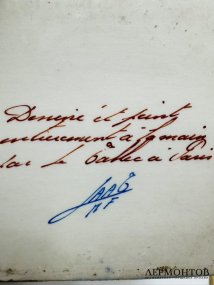 Dessiné et peint
entièrement à la main
par Le Tallec à Paris
ЛЕРМОНТОВ